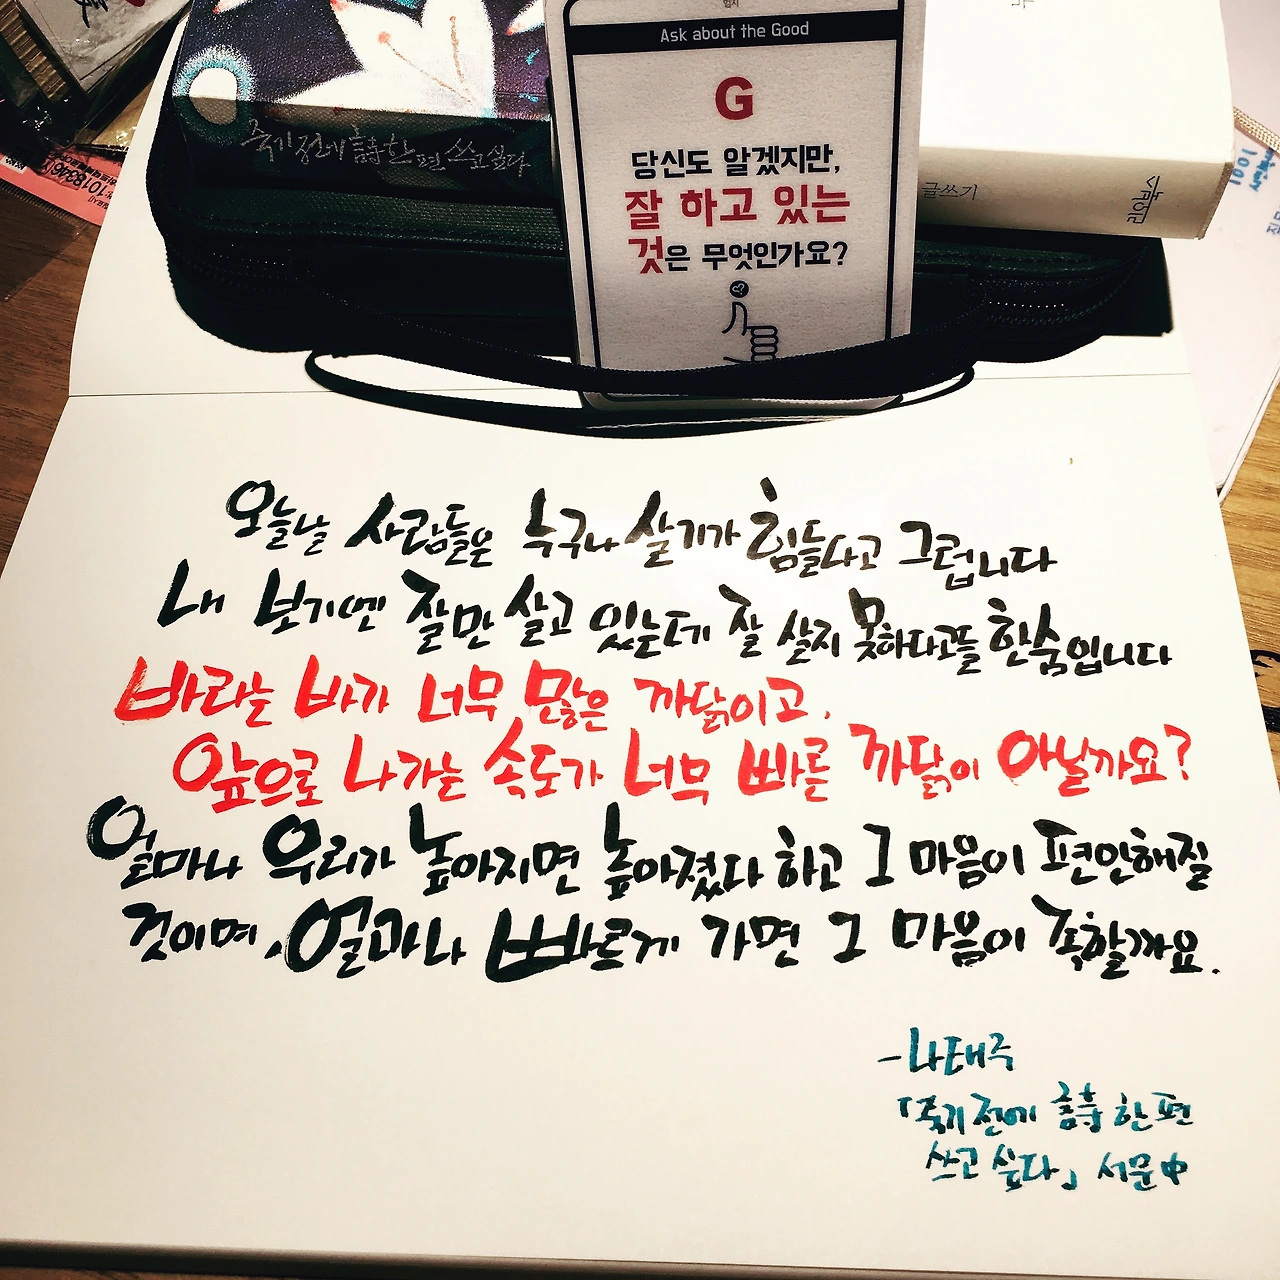 Ask about the Good
G
당신도 알겠지만,
잘 하고 있는
것은 무엇인가요?
죽기 전에 詩 한 편 쓰고 싶다
글쓰기
오늘날 사람들은 누구나 살기가 힘들다고 그럽니다
내 보기엔 잘만 살고 있는데 잘 살지 못하다고들 한숨입니다
바라는 바가 너무 많은 까닭이고,
앞으로 나가는 속도가 너무 빠른 까닭이 아닐까요?
얼마나 우리가 높아지면 높아졌다 하고 그 마음이 편안해질
것이며, 얼마나 빠르게 가면 그 마음이 족할까요.
-나태주
「죽기 전에 詩 한 편
쓰고 싶다」 서문 中